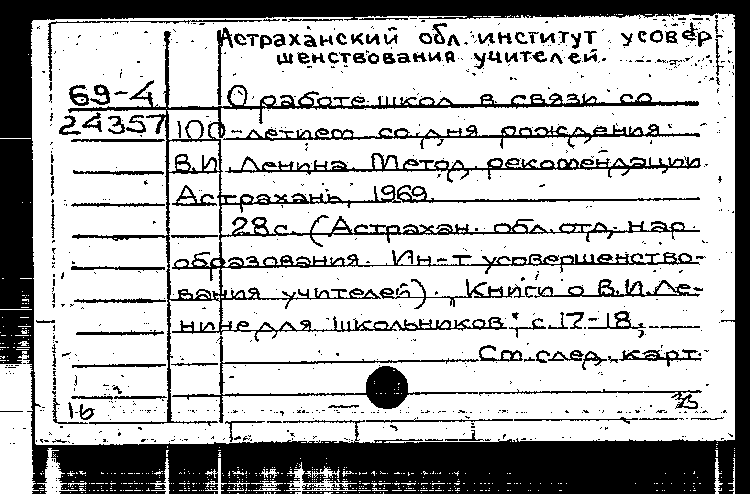 Астраханский обл. институт усовер-
шенствования учителей.
69-4
24357
О работе школ в связи со
100-летием со дня рождения
В.И. Ленина. Метод. рекомендации.
Астрахань, 1969.
28с. (Астрахан. обл. отд. нар.
образования. Ин-т усовершенство-
вания учителей). „Книги о В.И. Ле-
нине для школьников": с.17-18.
См. след. карт.
16